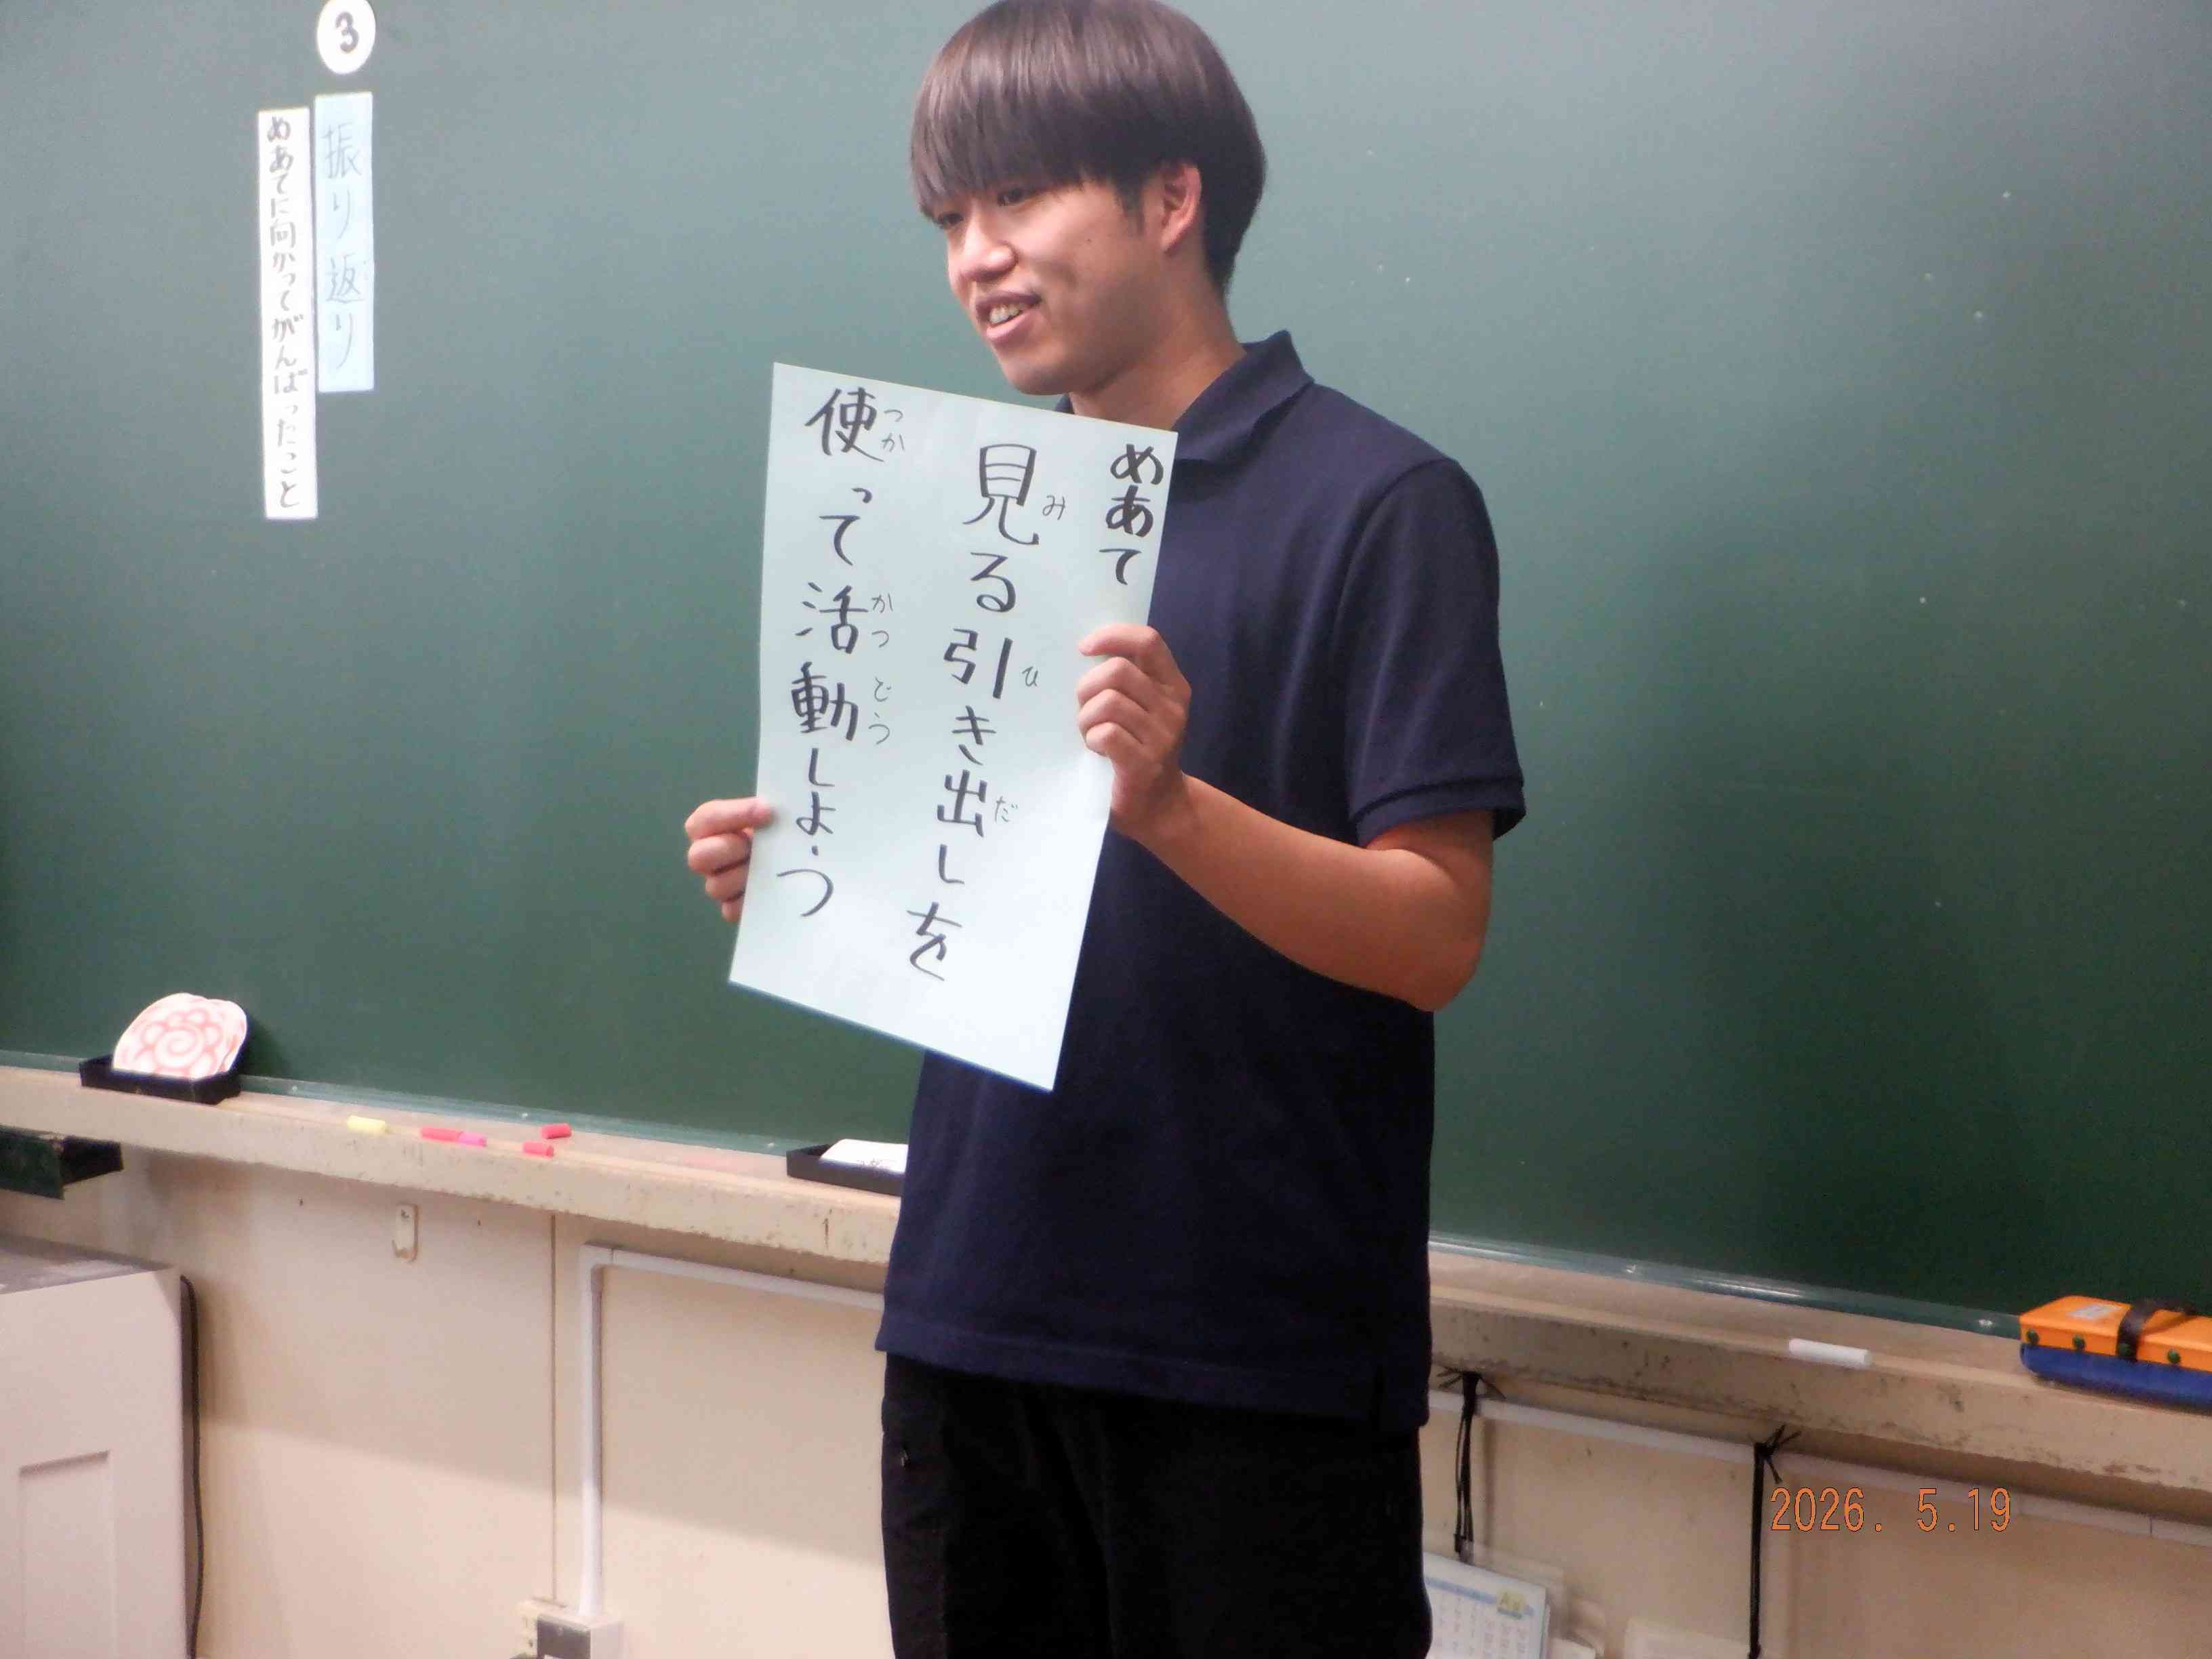 3
振り返り
めあてに向かってがんばったこと
めあて
見る引き出しを
み
ひ
だ
使って活動しよう
つか
かつどう
2026. 5.19